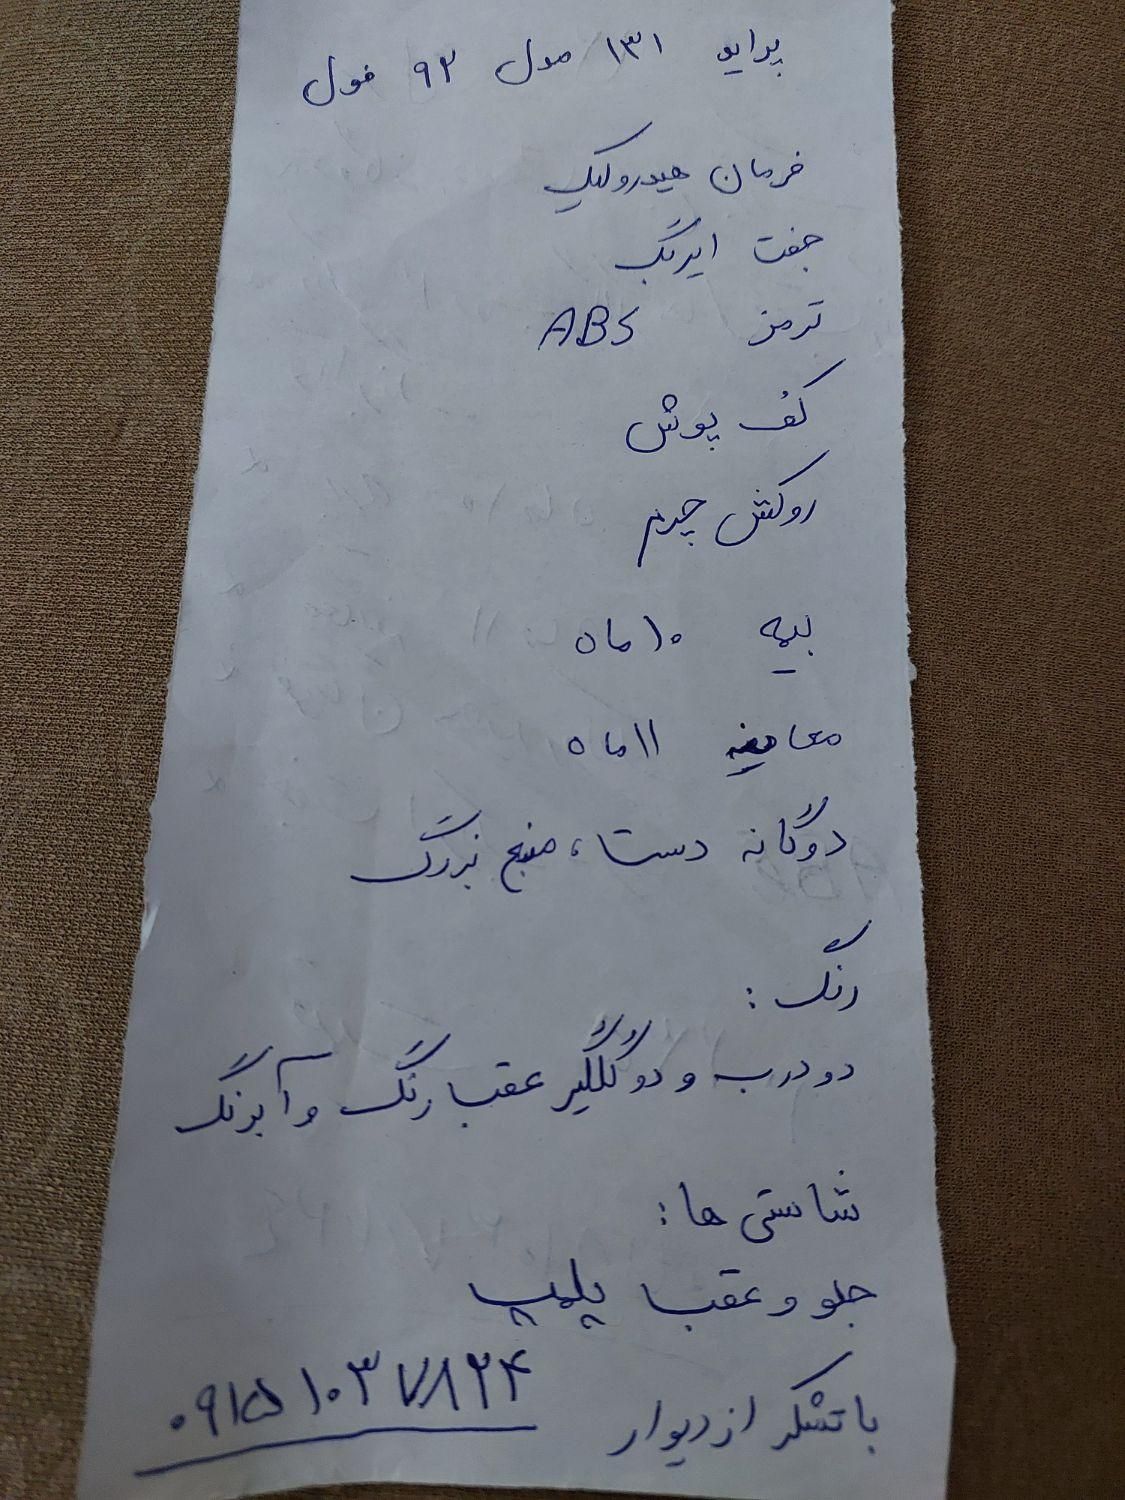 پراید ۱۳۱ مدل ۹۲ فول
فرمان هیدرولیک
جفت ایربگ
ترمز ABS
کف پوش
روکش چرم
بیمه ۱۰ ماه
معاینه ۱۱ ماه
دوگانه دستا، منبع بزرگ
رنگ :
دو درب و دو گلگیر عقب رنگ و آبرنگ
شاستی ها :
جلو و عقب پلمپ
با تشکر از دیوار ۰۹۱۵۱۰۳۷۸۲۴